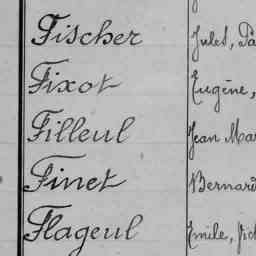 Fischer Jules,
Fixot Eugène,
Filleul Jean
Finet Bernard
Flageul Emile,